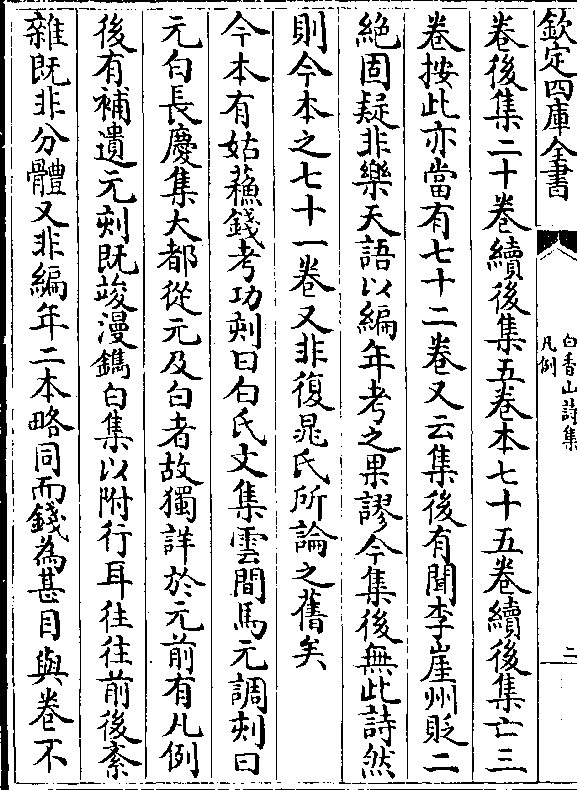 欽定四庫全書
白香山詩集
凡例
二
卷後集二十卷續後集五卷本七十五卷續後集亡三
卷按此亦當有七十二卷又云集後有聞李崖州貶二
絶固疑非樂天語以編年考之果謬今集後無此詩然
則今本之七十一卷又非復晁氏所論之舊矣
今本有姑蘓錢考功刻曰白氏文集雲間馬元調刻曰
元白長慶集大都從元及白者故獨詳於元前有凡例
後有補遺元刻既竣漫鐫白集以附行耳往往前後紊
雜既非分體又非編年二本略同而錢為甚目與卷不